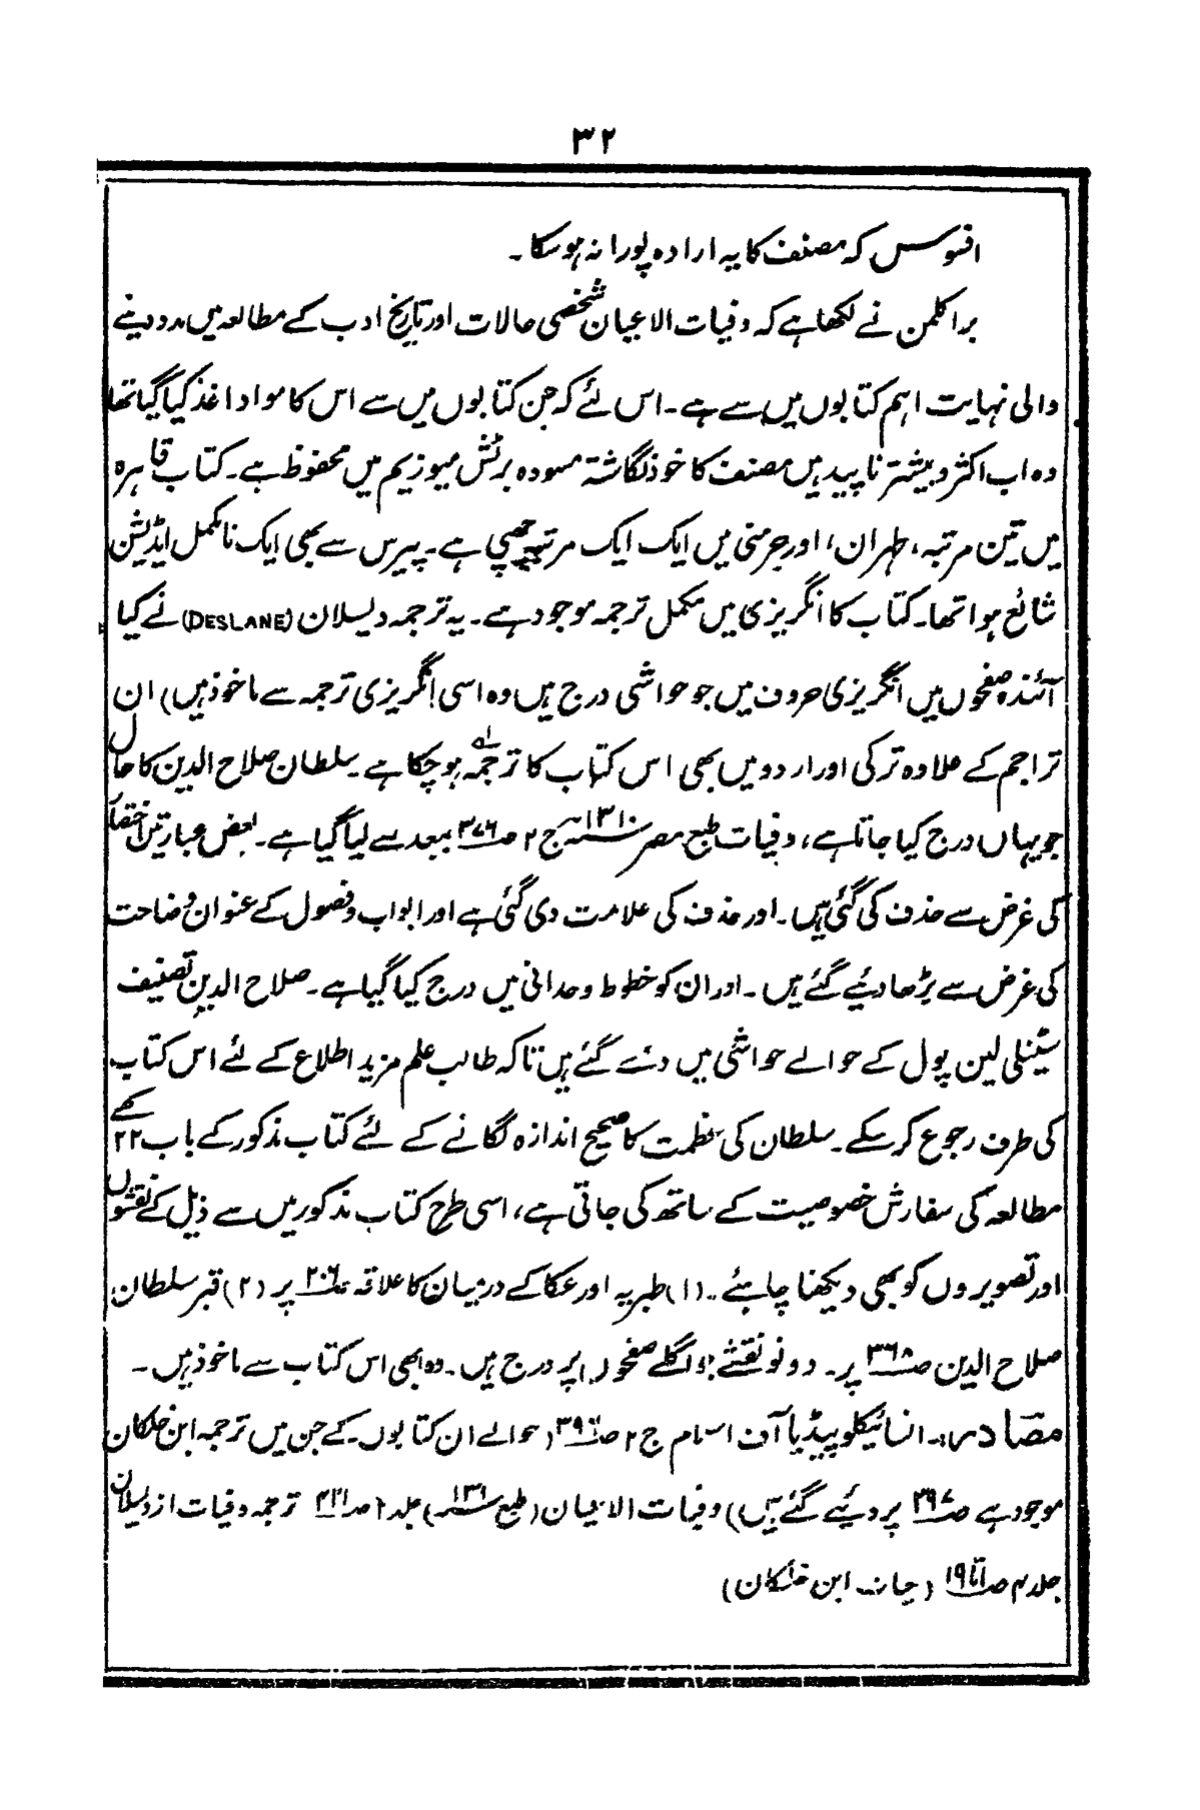 ۳۲
افسوس کہ مصنف کا یہ ارادہ پورا نہ ہوسکا۔
براکلمن نے لکھا ہے کہ وفیات الاعیان شخصی حالات اور تاریخ ادب کے مطالعہ میں مدد دینے
والی نہایت اہم کتابوں میں سے ہے۔ اس لئے کہ جن کتابوں میں سے اس کا مواد اخذ کیا گیا تھا
وہ اب اکثر و بیشتر ناپید ہیں مصنف کا خود نگاشتہ مسودہ برٹش میوزیم میں محفوظ ہے۔ کتاب قاہرہ
میں تین مرتبہ، طہران، اور جرمنی میں ایک ایک مرتبہ چھپی ہے۔ پیرس سے بھی ایک نامکمل ایڈیشن
شائع ہوا تھا۔ کتاب کا انگریزی میں مکمل ترجمہ موجود ہے۔ یہ ترجمہ دیسلان (DESLANE) نے کیا
آئندہ صفحوں میں انگریزی حروف میں جو حواشی درج ہیں وہ اسی انگریزی ترجمہ سے ماخوذ ہیں) ان
تراجم کے علاوہ ترکی اور اردو میں بھی اس کتاب کا ترجمہ ہوچکا ہے۔ سلطان صلاح الدین کا حال
جو یہاں درج کیا جاتا ہے، وفیات طبع مصر ۱۳۱۰ ج ۲ صـ۳۷۶ ببعد سے لیا گیا ہے۔ بعض عبارتیں اختصار
کی غرض سے حذف کی گئی ہیں۔ اور حذف کی علامت دی گئی ہے اور ابواب و فصول کے عنوان وضاحت
کی غرض سے بڑھا دیئے گئے ہیں۔ اور ان کو خطوط وحدانی میں درج کیا گیا ہے۔ صلاح الدین تصنیف
سٹینلی لین پول کے حوالے حواشی میں دئے گئے ہیں تاکہ طالب علم مزید اطلاع کے لئے اس کتاب
کی طرف رجوع کر سکے۔ سلطان کی عظمت کا صحیح اندازہ لگانے کے لئے کتاب مذکور کے باب ۲۲ کے
مطالعہ کی سفارش خصوصیت کے ساتھ کی جاتی ہے، اسی طرح کتاب مذکور میں سے ذیل کے نقشوں
اور تصویروں کو بھی دیکھنا چاہئے۔ (۱) طبریہ اور عکا کے درمیان کا علاقہ صـ۲۰۶ پر (۲) قبر سلطان
صلاح الدین صـ۳۶۸ پر۔ دونو نقشے جو اگلے صفحوں پر درج ہیں۔ وہ بھی اس کتاب سے ماخوذ ہیں۔
مصادر:۔ انسائیکلوپیڈیا آف اسلام ج ۲ صـ۳۹۶ (حوالے ان کتابوں کے جن میں ترجمہ ابن خلکان
موجود ہے صـ۳۹۷ پر دیئے گئے ہیں) وفیات الاعیان (طبع) جلد ۲ ترجمہ وفیات از دیسلان
جلد ۴ صـ۱۹ (حیات ابن خلکان)